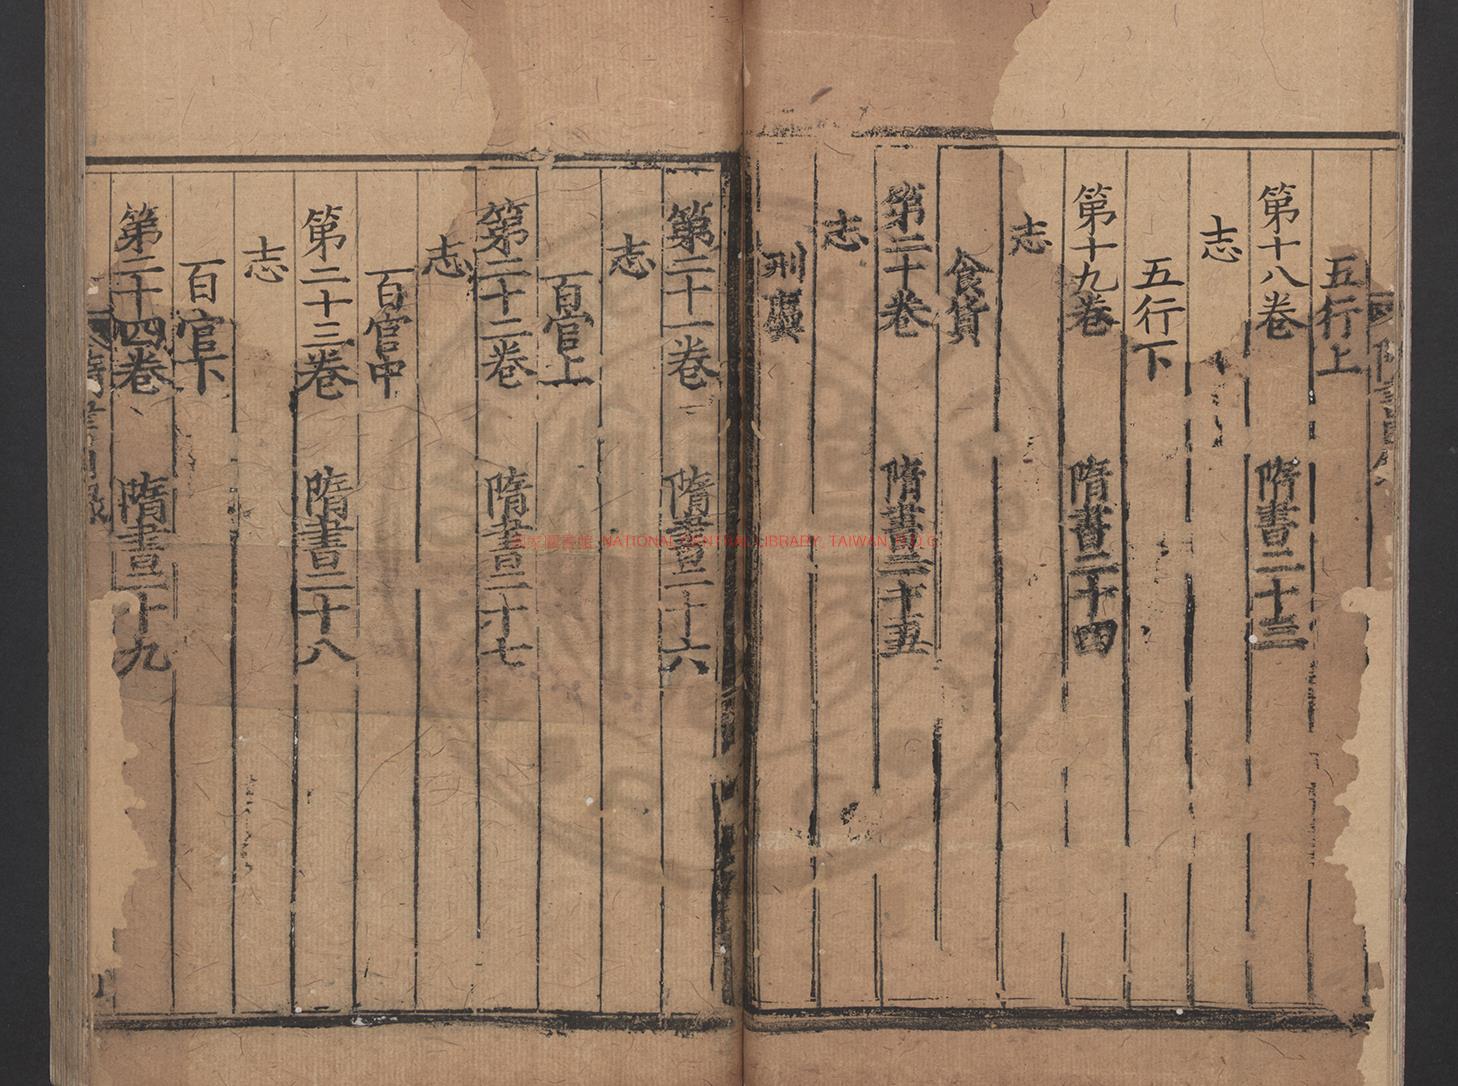 五行上
第十八卷 隋書二十三
志
五行下
第十九卷 隋書二十四
志
食貨
第二十卷 隋書二十五
志
刑
第二十一卷 隋書二十六
志
百官上
第二十二卷 隋書二十七
志
百官中
第二十三卷 隋書二十八
志
百官下
第二十四卷 隋書二十九
國家圖書館 NATIONAL CENTRAL LIBRARY, TAIWAN, R.O.C